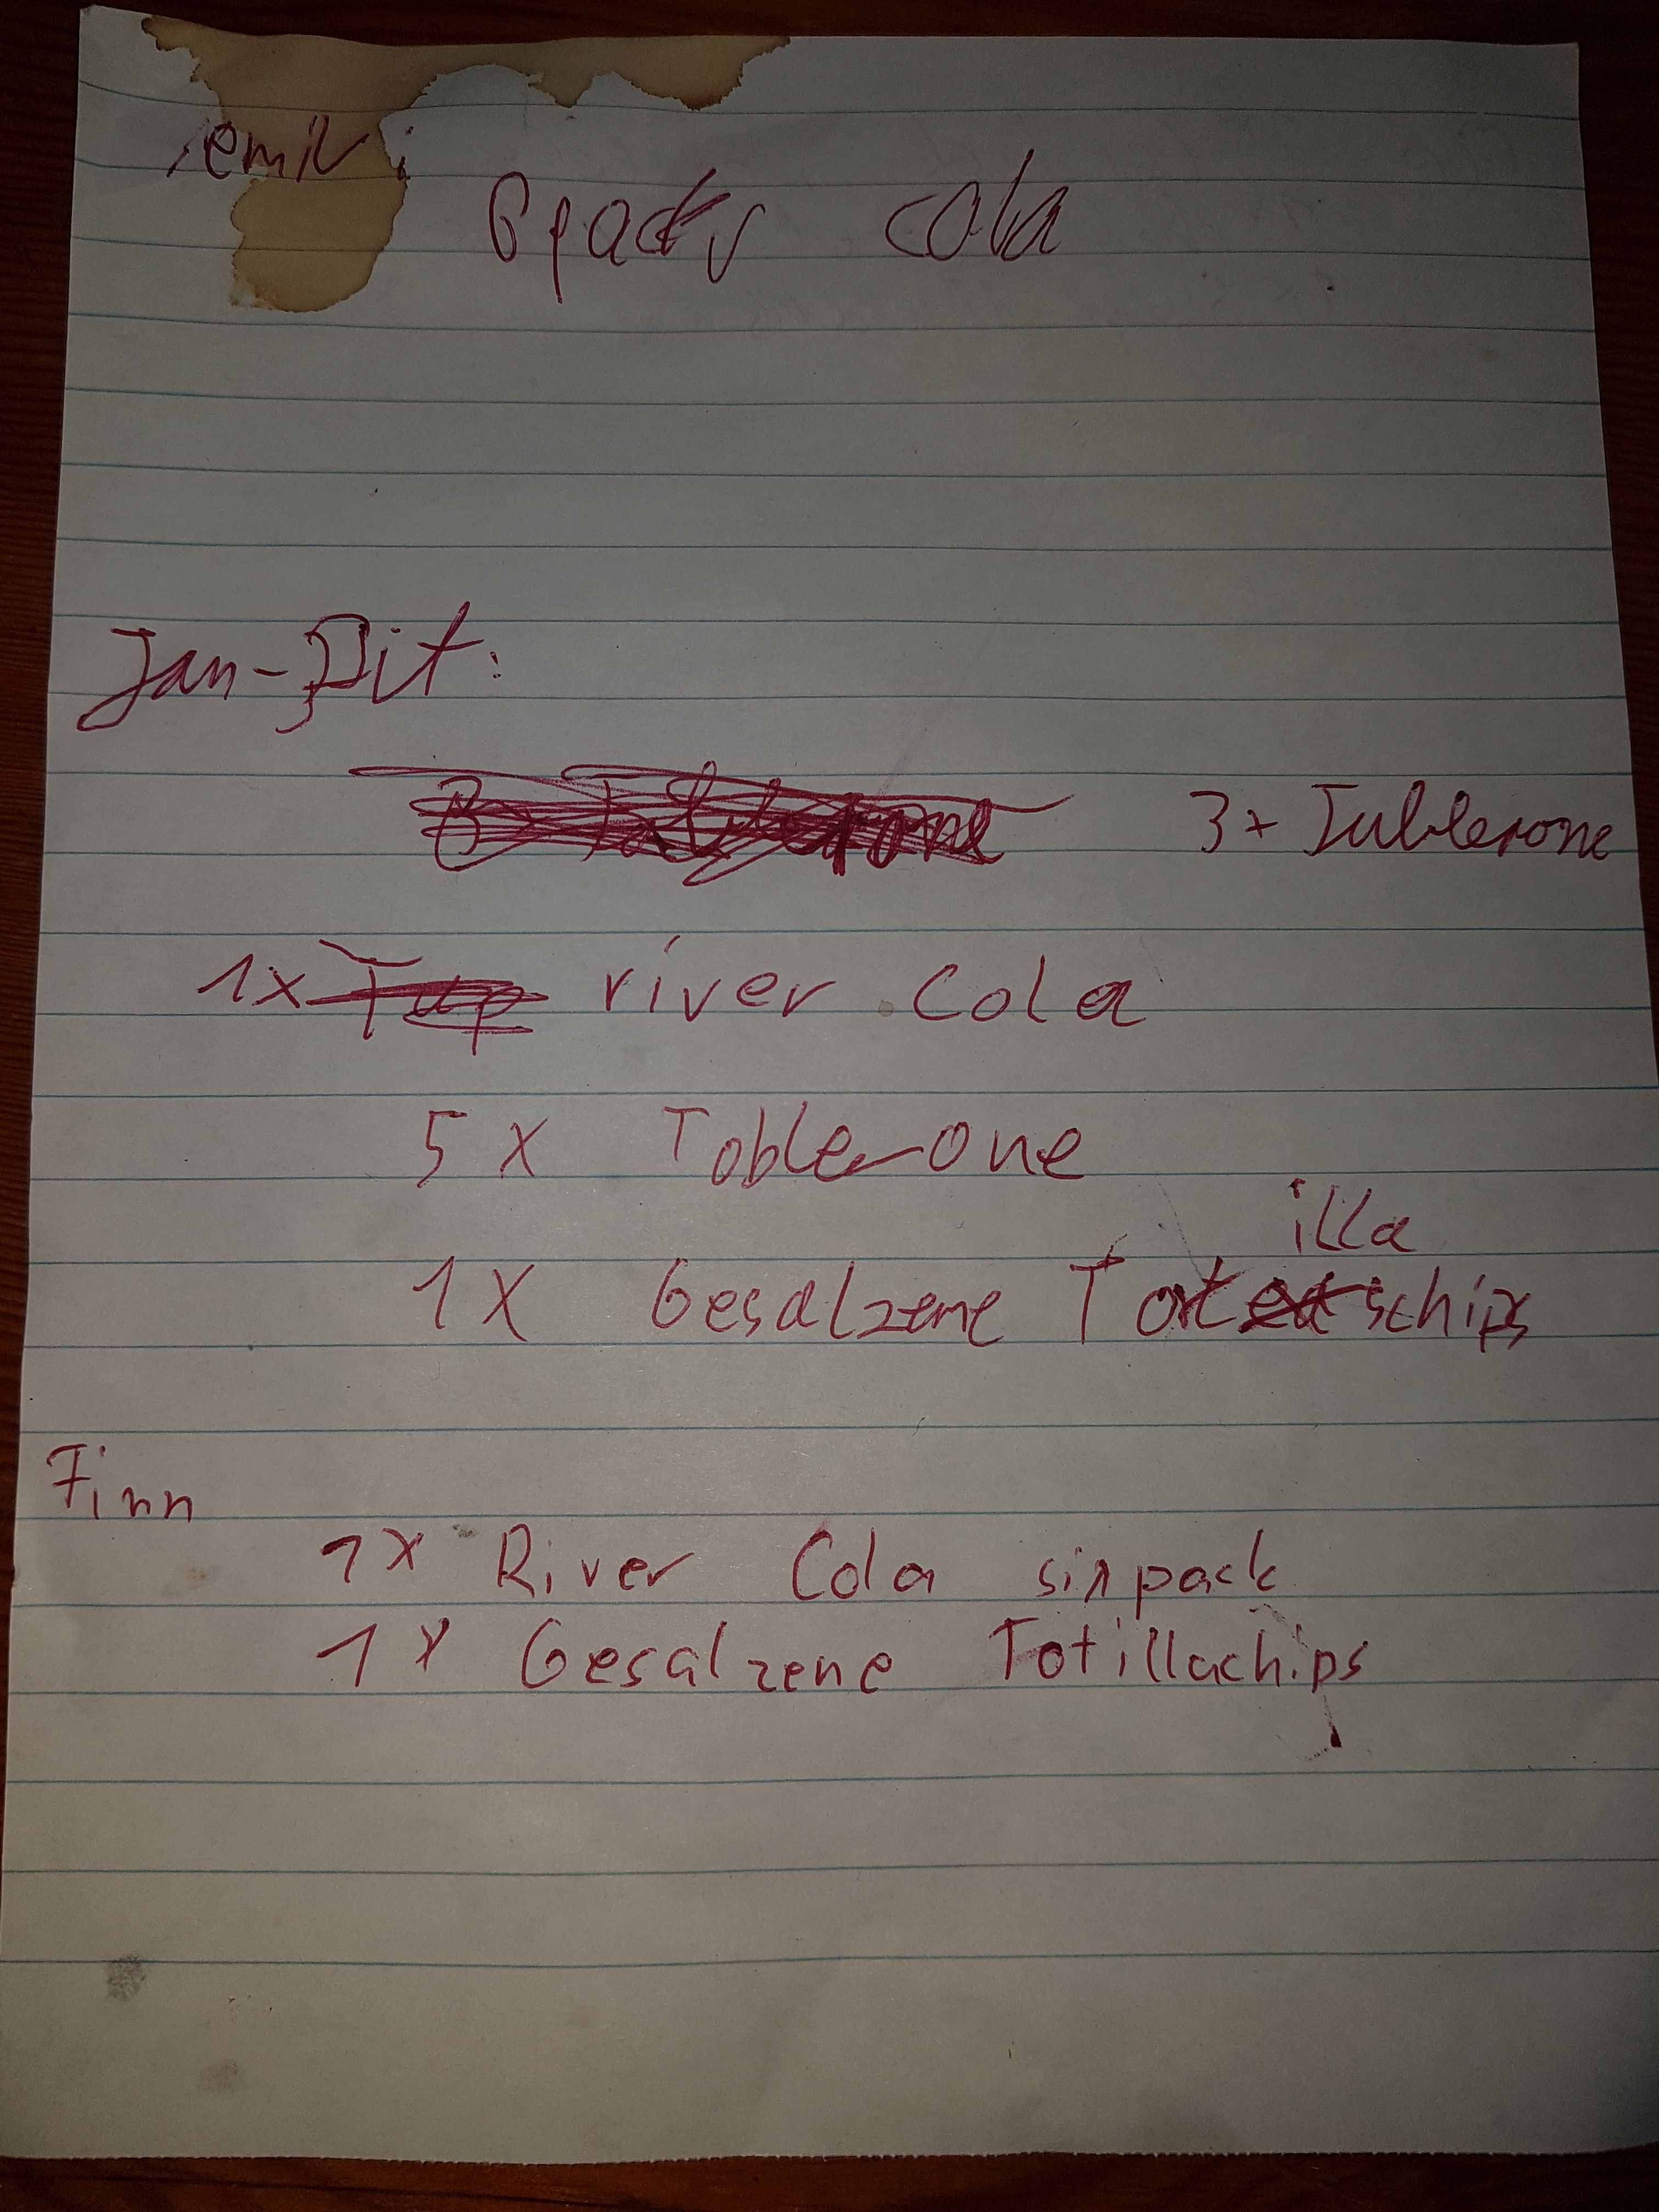 emil:
6packs cola
Jan-Pit:
3x Tublerone
1x river Cola
5x Toblerone
illa
1x Gesalzene Tortschips
Finn
1x River Cola sixpack
1x Gesalzene Totillachips